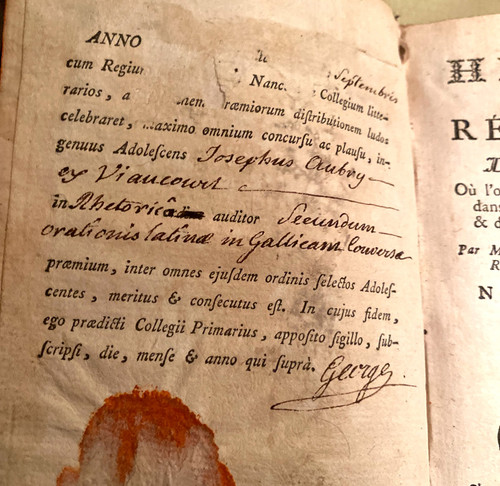 ANNO
Septembris
cum Regium Nanc Collegium litte-
rarios, a nem præmiorum diſtributionem ludos
celebraret, maximo omnium concurſu ac plauſu, in-
genuus Adoleſcens Josephus Aubry
ex Viaucourt
in Rhetoricâ auditor Secundum
orationis latinæ in Gallicam Conversæ
præmium, inter omnes ejuſdem ordinis ſelectos Adoleſ-
centes, meritus & conſecutus eſt. In cujus fidem,
ego prædicti Collegii Primarius, appoſito ſigillo, ſub-
ſcripſi, die, menſe & anno qui ſuprà. George
H
RÉ
Où l'o
dans
& d
Par M
R
N